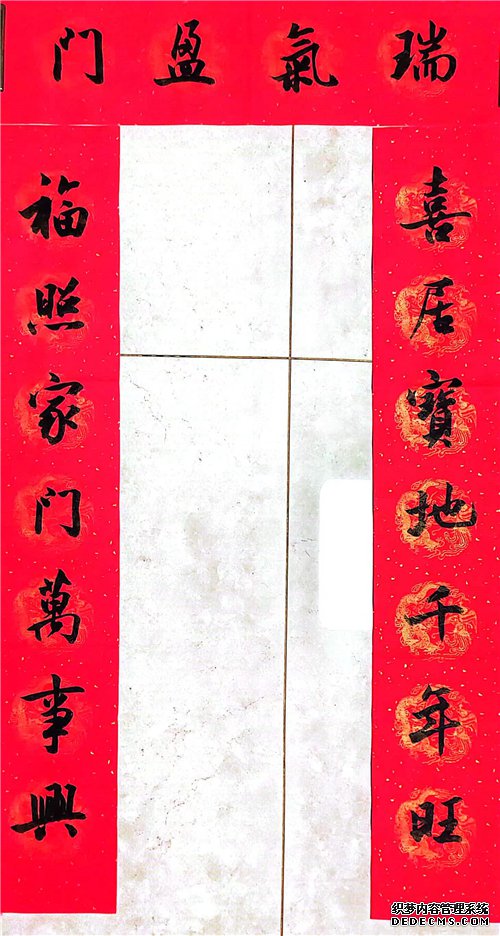 瑞氣盈門
喜居寶地千年旺
福照家门萬事興
织梦内容管理系统
DEDECMS.COM